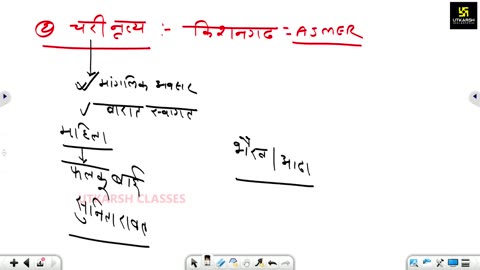 ② चरी नृत्य :- किशनगढ = AJMER
✓ मांगलिक अवसर
✓ बारात स्वागत
महिला
फलकू बाई
सुनिता रावत
भैरव | माता
UTKARSH CLASSES
UTKARSH